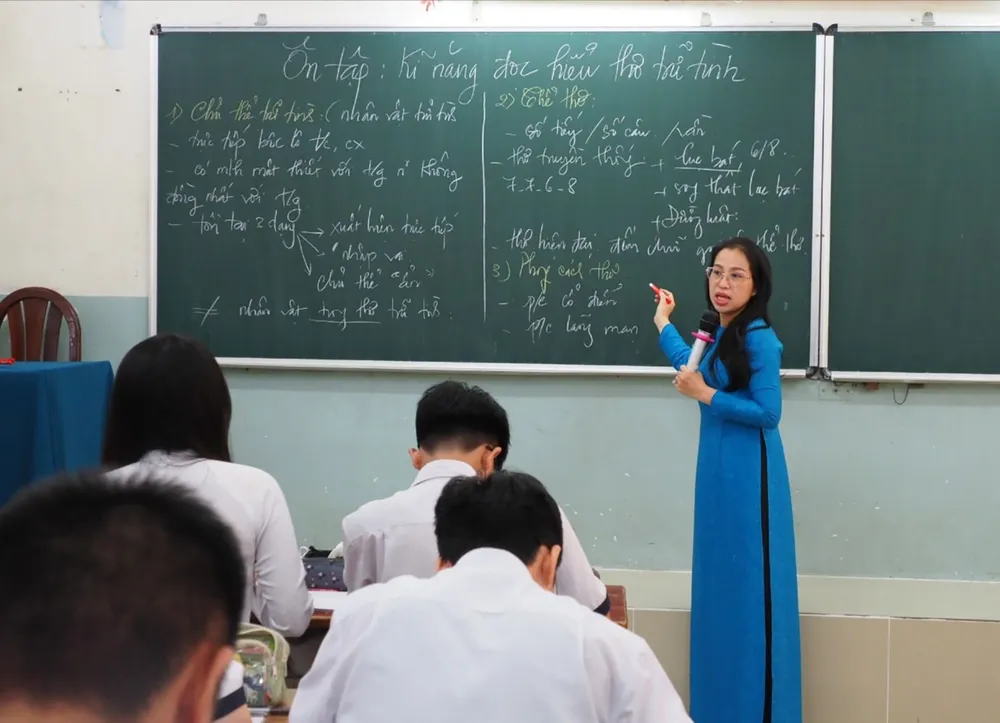 Ôn tập: Kĩ năng đọc hiểu thơ trữ tình
1) Chủ thể trữ tình: (nhân vật trữ tình
- trực tiếp bộc lộ t/c, cx
- có mlh mật thiết với t/g n' không
đồng nhất với t/g
- tồn tại 2 dạng → xuất hiện trực tiếp
nhập vai
chủ thể ẩn
≠ nhân vật trong thơ trữ tình.
2) Thể thơ:
- số tiếng / số câu / vần
- thơ truyền thống + lục bát, 6/8.
7-7-6-8 + song thất lục bát
+ Đường luật:
- thơ hiện đại, đếm chữ thể thơ.
3) Phong cách thơ
- p/c cổ điển
- p/c lãng mạn